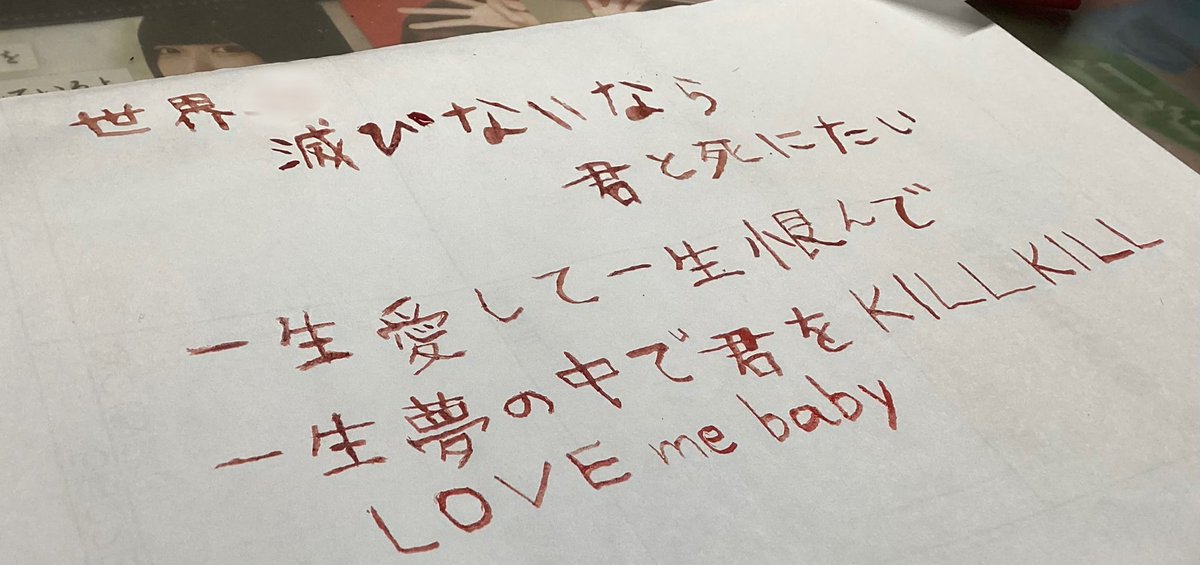 世界
滅びないなら
君と死にたい
一生愛して一生恨んで
一生夢の中で君をKILLKILL
LOVE me baby